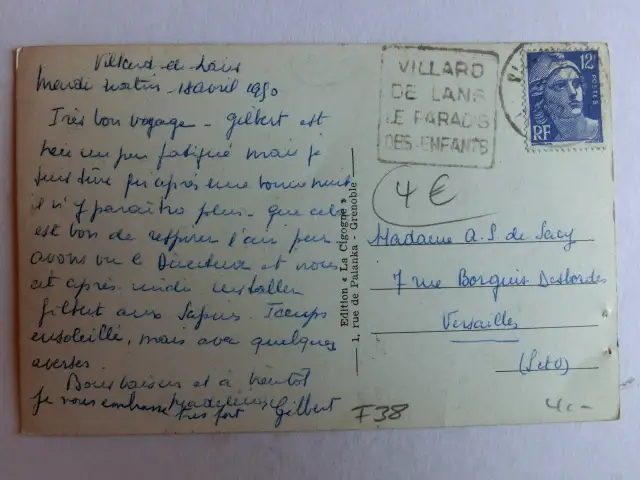 Villard de Lans
Mardi matin - 18 avril 1950
Très bon voyage - Gilbert est
bien un peu fatigué mais je
suis sûre qu'après une bonne nuit
il n'y paraîtra plus - que cela
est bon de respirer l'air pur
avons vu le Directeur et nous
cet après-midi installer
Gilbert aux Sapins. Temps
ensoleillé, mais avec quelques
averses.
Bons baisers et à bientôt
Je vous embrasse Madeleine
très fort Gilbert
Edition « La Cigogne »
1, rue de Palanka - Grenoble
VILLARD
DE LANS
LE PARADIS
DES ENFANTS
12
POSTES
RF
4 €
Madame A. S. de Sacy
7 rue Borgnis Desbordes
Versailles
(S et O)
F38
4,-